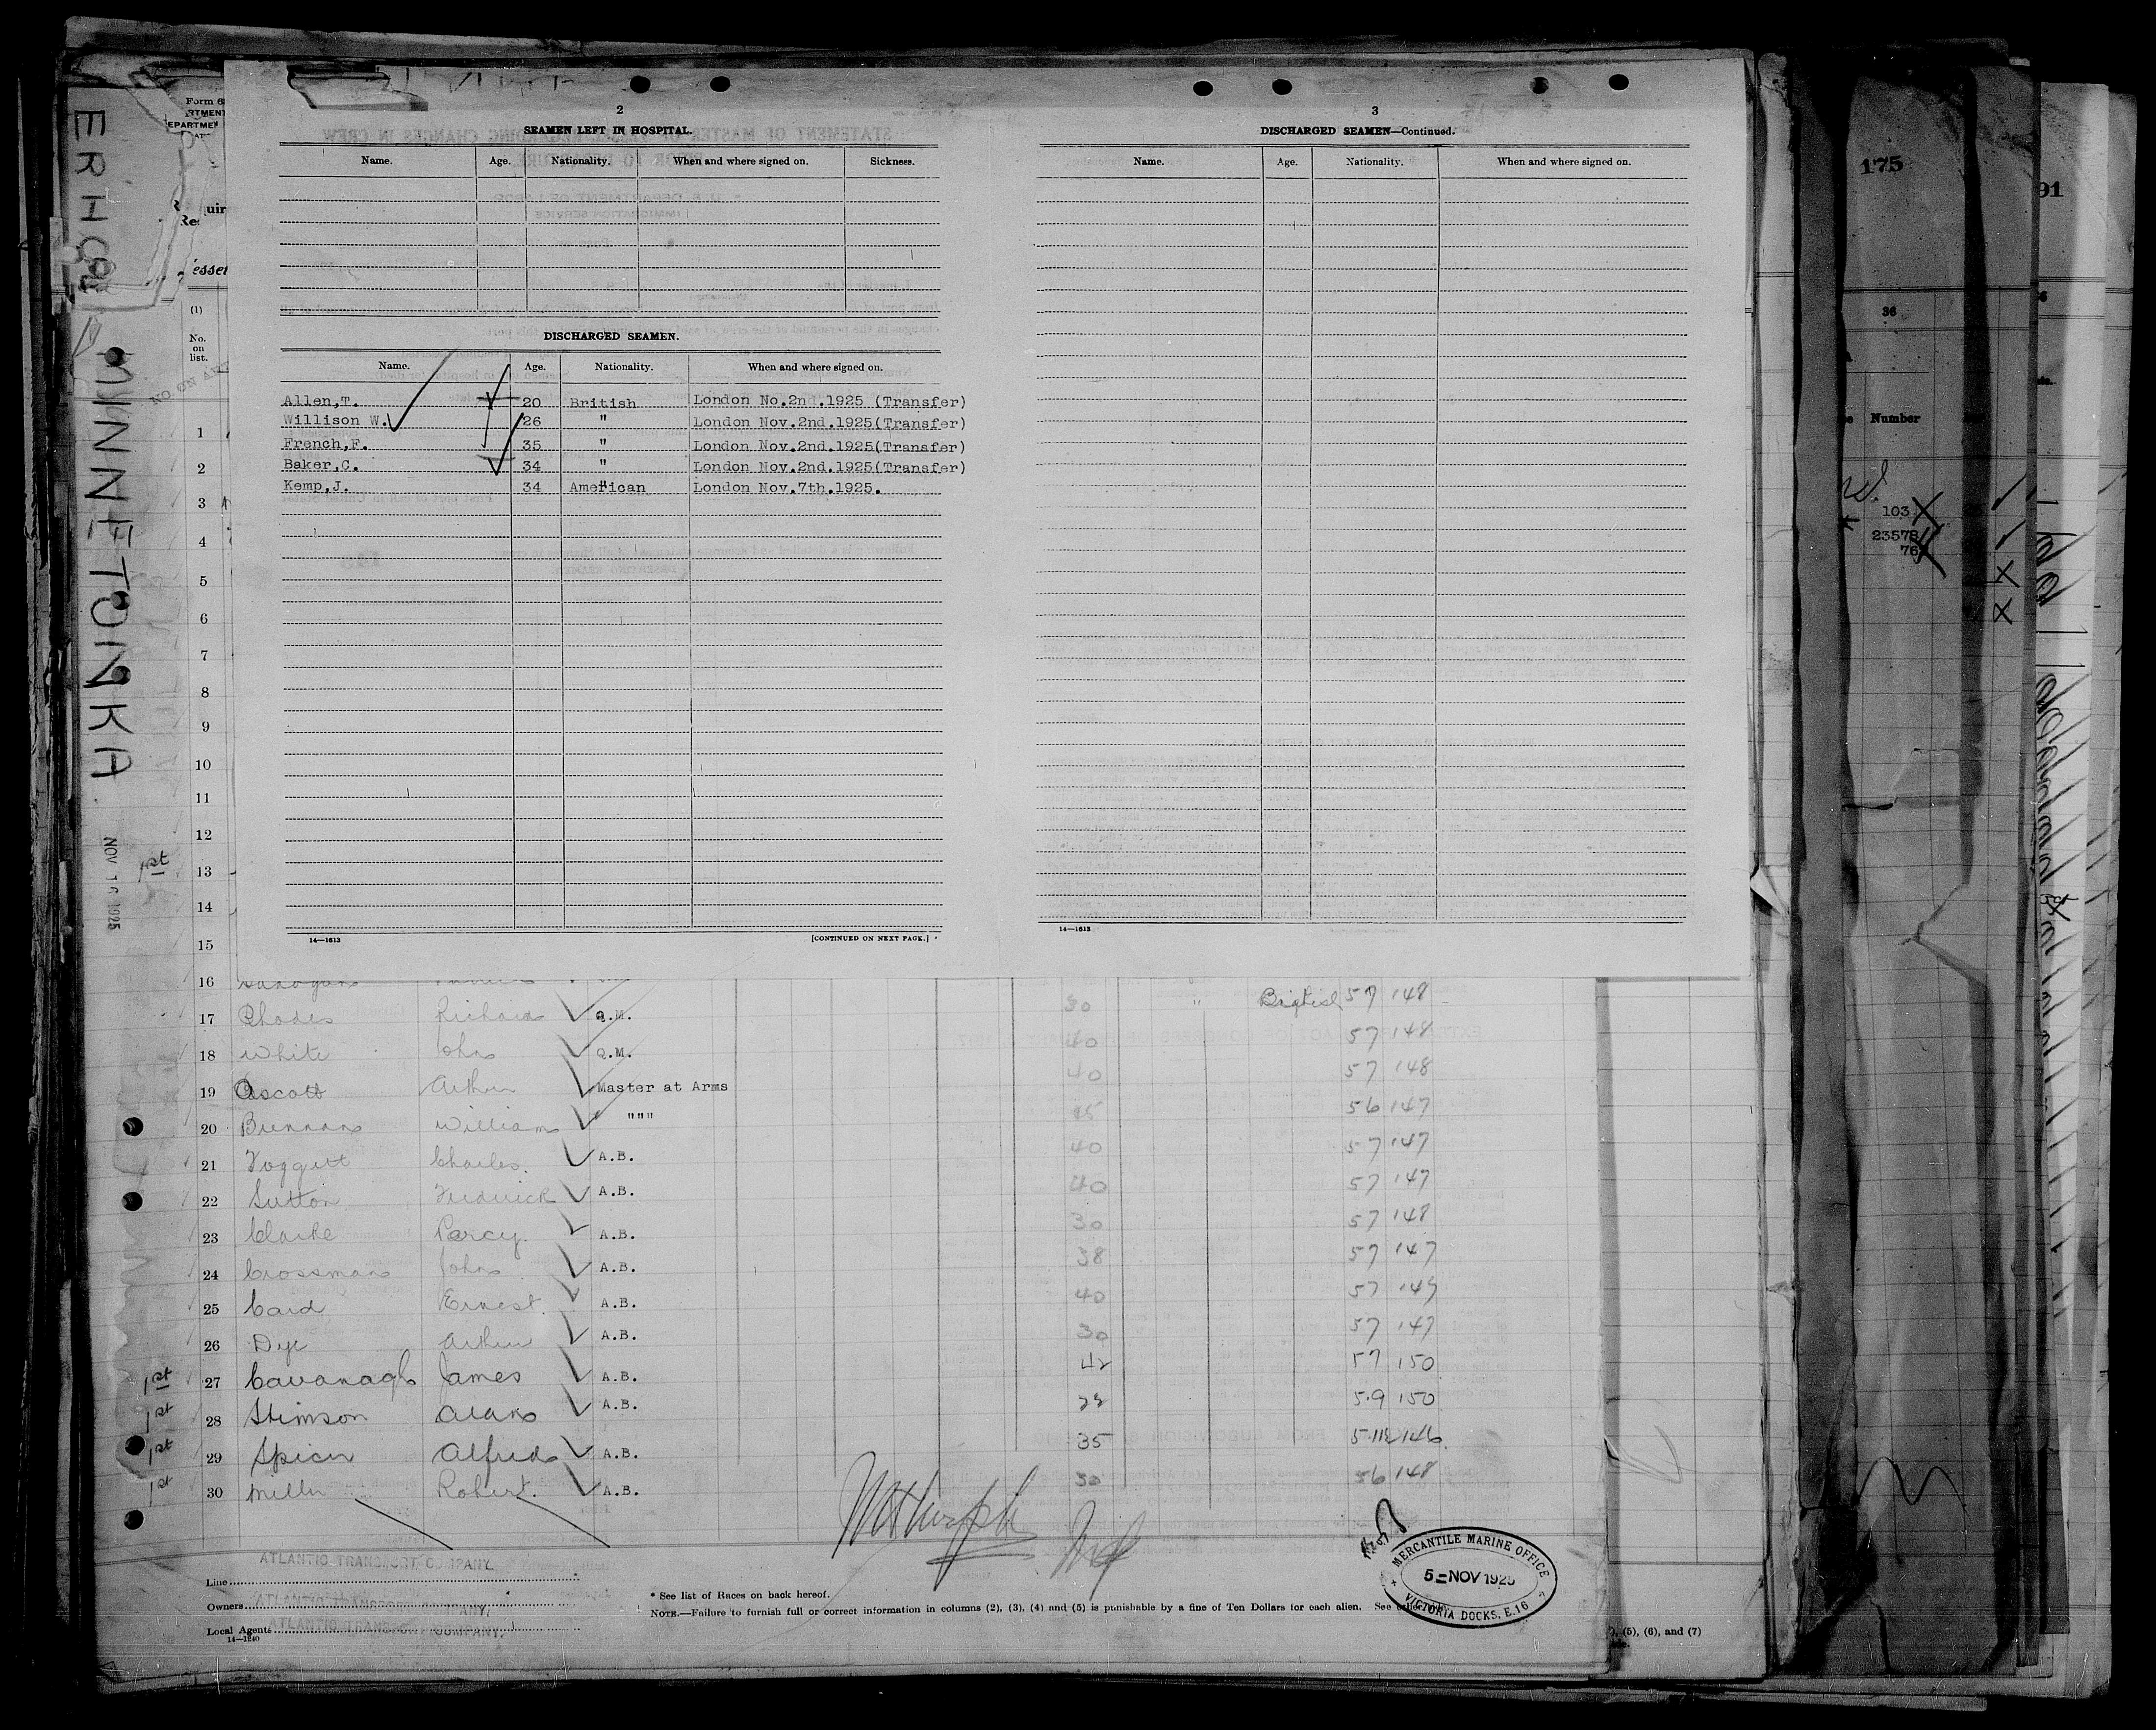 MINNETONKA
NOV 16 1925
175
91
36
Number
103
23578
76
Form 6
(1)
No.
on
list.
2
SEAMEN LEFT IN HOSPITAL.
Name. Age. Nationality. When and where signed on. Sickness.
DISCHARGED SEAMEN.
Name. Age. Nationality. When and where signed on.
Allen,T. 20 British London No.2nd.1925 (Transfer)
Willison W. 26 " London Nov.2nd.1925(Transfer)
French,F. 35 " London Nov.2nd.1925(Transfer)
Baker,C. 34 " London Nov.2nd.1925(Transfer)
Kemp,J. 34 American London Nov.7th.1925.
14—1613 [CONTINUED ON NEXT PAGE.]
3
DISCHARGED SEAMEN—Continued.
Name. Age. Nationality. When and where signed on.
14—1613
1
2
3
4
5
6
7
8
9
10
11
12
1st 13
14
15
16
17 Rhodes Richard Q.M. 30 " English 57 148
18 White John Q.M. 40 57 148
19 Ascott Arthur Master at Arms 40 57 148
20 Brennan William " """ 45 56 147
21 Foggett Charles. A.B. 40 57 147
22 Sutton Frederick A.B. 40 57 147
23 Clarke Percy. A.B. 30 57 148
24 Crossman John A.B. 38 57 147
25 Card Ernest. A.B. 40 57 149
26 Dye Arthur A.B. 30 57 147
1st 27 Cavanagh James A.B. 42 57 150
1st 28 Stimson Alan A.B. 5.9 150
1st 29 Spicer Alfred A.B. 35 5.11½ 146
1st 30 Miller Robert. A.B. 30 56 148
Line ATLANTIC TRANSPORT COMPANY.
Owners ATLANTIC TRANSPORT COMPANY.
Local Agents ATLANTIC TRANSPORT COMPANY.
14—1240
* See list of Races on back hereof.
NOTE.—Failure to furnish full or correct information in columns (2), (3), (4) and (5) is punishable by a fine of Ten Dollars for each alien. See other
MERCANTILE MARINE OFFICE
5-NOV 1925
VICTORIA DOCKS, E.16
(5), (6), and (7)